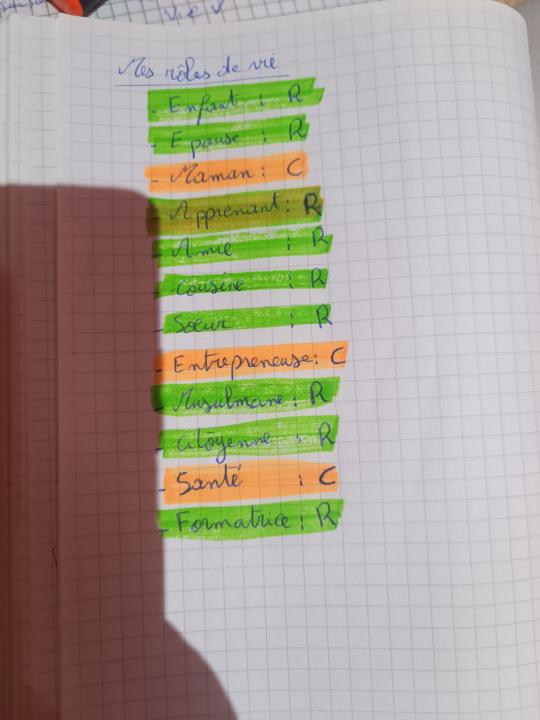 Vie
Mes rôles de vie
- Enfant : R
- Epouse : R
- Maman : C
- Apprenant : R
- Amie : R
- Cousine : R
- Soeur : R
- Entrepreneuse : C
- Musulmane : R
- Citoyenne : R
- Santé : C
- Formatrice : R